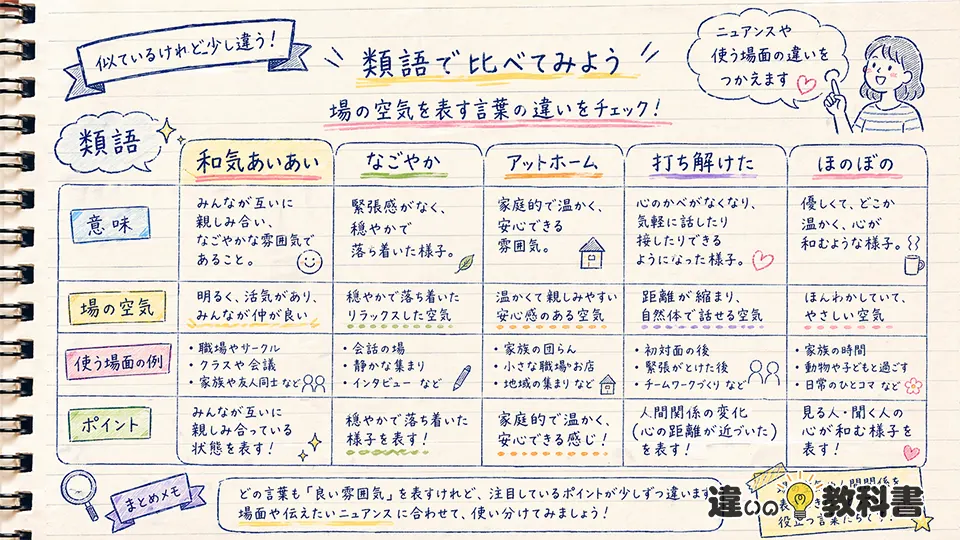 似ているけれど少し違う！
類語で比べてみよう
ニュアンスや
使う場面の違いを
つかえます
場の空気を表す言葉の違いをチェック！
類語
和気あいあい
なごやか
アットホーム
打ち解けた
ほのぼの
意味
みんなが互いに
親しみ合い、
なごやかな雰囲気で
あること。
緊張感がなく、
穏やかで
落ち着いた様子。
家庭的で温かく、
安心できる
雰囲気。
心のかべがなくなり、
気軽に話したり
接したりできる
ようになった様子。
優しくて、どこか
温かく、心が
和むような様子。
場の空気
明るく、活気があり、
みんなが仲が良い
穏やかで落ち着いた
リラックスした空気
温かくて親しみやすい
安心感のある空気
距離が縮まり、
自然体で話せる空気
ほんわかしていて、
やさしい空気
使う場面の例
・職場やサークル
・クラスや会議
・家族や友人同士 など
・会話の場
・静かな集まり
・インタビュー など
・家族の団らん
・小さな職場やお店
・地域の集まり など
・初対面の後
・緊張がとけた後
・チームワークづくり など
・家族の時間
・動物や子どもと過ごす
・日常のひとコマ など
ポイント
みんなが互いに
親しみ合っている
状態を表す！
穏やかで落ち着いた
様子を表す！
家庭的で温かく、
安心できる感じ！
人間関係の変化
（心の距離が近づいた）
を表す！
見る人・聞く人の
心が和む様子を
表す！
まとめメモ
どの言葉も「良い雰囲気」を表すけれど、注目しているポイントが少しずつ違います
場面や伝えたいニュアンスに合わせて、使い分けてみましょう！
違いの教科書
役立つ言葉たち